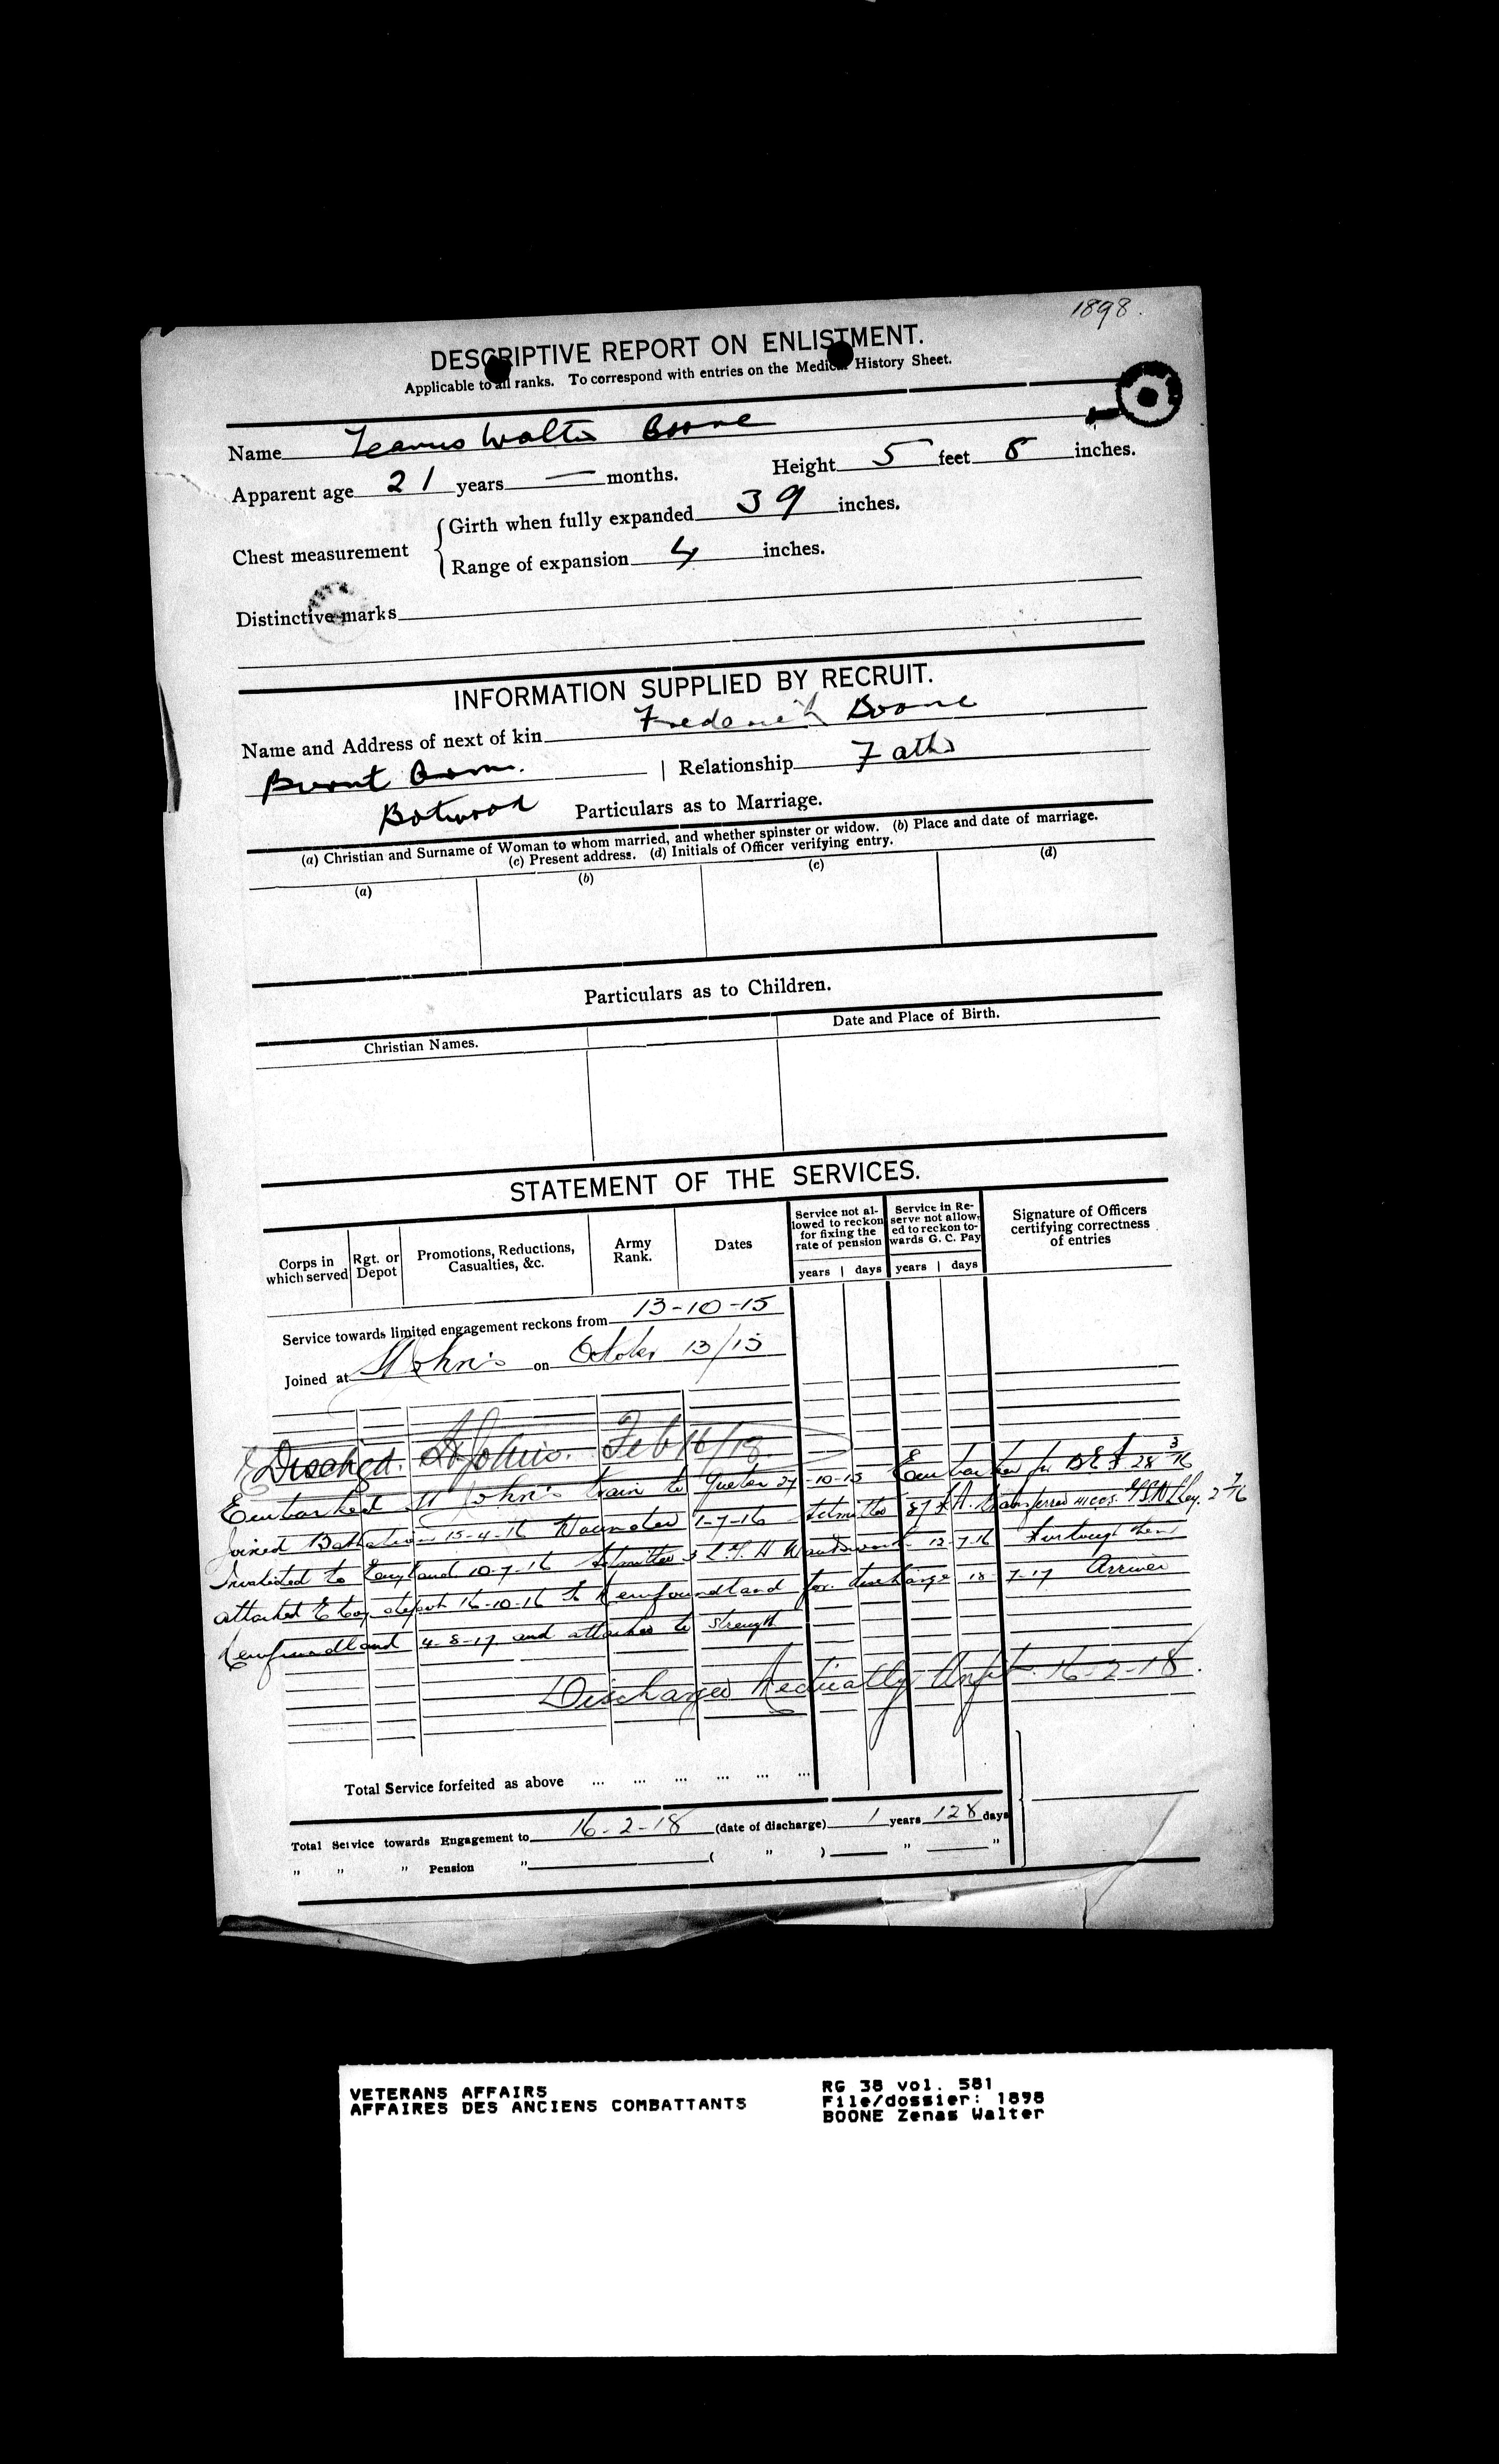 1898.
DESCRIPTIVE REPORT ON ENLISTMENT.
Applicable to all ranks. To correspond with entries on the Medical History Sheet.
Name Walter Boone
Apparent age 21 years — months. Height 5 feet 8 inches.
Chest measurement
Girth when fully expanded 39 inches.
Range of expansion 4 inches.
Distinctive marks
INFORMATION SUPPLIED BY RECRUIT.
Name and Address of next of kin Frederick Boone
Burnt | Relationship Father
Botwood Particulars as to Marriage.
(a) Christian and Surname of Woman to whom married, and whether spinster or widow. (b) Place and date of marriage.
(c) Present address. (d) Initials of Officer verifying entry.
(a) (b) (c) (d)
Particulars as to Children.
Christian Names. Date and Place of Birth.
STATEMENT OF THE SERVICES.
Corps in which served Rgt. or Depot Promotions, Reductions, Casualties, &c. Army Rank. Dates Service not allowed to reckon for fixing the rate of pension Service in Reserve not allowed to reckon towards G. C. Pay Signature of Officers certifying correctness of entries
years | days years | days
Service towards limited engagement reckons from 13-10-15
Joined at St John's on October 13/15
Dischgd. St Johns. Feb 16/18.
Embarked St John's train to Quebec 27-10-15 Embarked for B E F 28 3/16
Joined Battalion 15-4-16 Wounded 1-7-16 Admitted 87 F.A. transferred GSW Leg. 2 7/16
Invalided to England 10-7-16 Admitted 3 L.G.H Wandsworth 12-7-16 Furlough then
attached E Coy depot 16-10-16 To Newfoundland for discharge 18-7-17 Arrived
Newfoundland 4-8-17 and attached to strength
Discharged Medically Unfit 16-2-18.
Total Service forfeited as above ... ... ... ... ... ...
Total Service towards Engagement to 16-2-18 (date of discharge) 1 years 128 days
" " " Pension " ( " ) " "
VETERANS AFFAIRS RG 38 vol. 581
AFFAIRES DES ANCIENS COMBATTANTS File/dossier: 1898
BOONE Zenas Walter